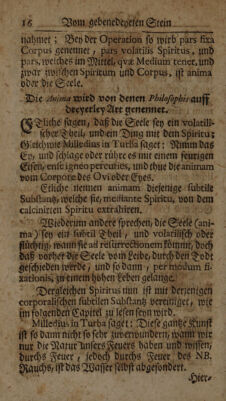 16 Vom gebenedeyeten Stein
nahmet; Bey der Operation so wird pars fixa
Corpus genennet, pars volatilis Spiritus, und
pars, welches im Mittel, quæ Medium tenet, und
zwar zwischen Spiritum und Corpus, ist anima
oder die Seele.
Die Anima wird von denen Philosophis auff
dreyerley Art genennet.
Etliche sagen, daß die Seele sey ein volatili-
scher Theil, und ein Ding mit dem Spiritu;
Gleichwie Milledius in Turba saget: Nimm das
Ey, und schlage oder rühre es mit einem feurigen
Eisen, ense igneo percutito, und thue det animam
vom Corpore des Ovi oder Eyes.
Etliche nennen animam diejenige subtile
Substantz, welche sie, mediante Spiritu, von dem
calcinirten Spiritu extrahiren.
Wiederum andere sprechen, die Seele (ani-
ma) sey ein subtil Theil, und volatilisch oder
flüchtig, wann sie ad resurrectionem kömmt, doch
daß vorher die Seele vom Leibe, durch den Todt
geschieden werde, und so dann, per modum fi-
xationis, zu einem hohen Leben gelange.
Dergleichen Spiritus nun ist mit derjenigen
corporalischen subtilen Substantz vereiniget, wie
im folgenden Capitel zu lesen seyn wird.
Milledius in Turba saget: Diese gantze Kunst
ist so dann nicht so sehr zu verwundern, wann wir
nur die Natur unsers Feuers haben und wissen;
durchs Feuer, jedoch durchs Feuer des NB.
Rauchs, ist das Wasser selbst abgesondert.
Hier-